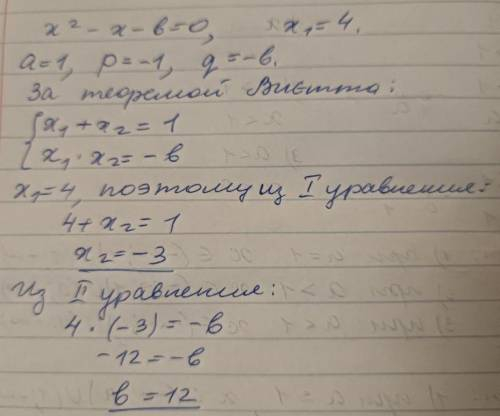 x² - x - b = 0, x₁ = 4.
a = 1, p = -1, q = -b.
За теоремой Виетта:
{x₁ + x₂ = 1
{x₁ · x₂ = -b
x₁ = 4, поэтому из I уравнения:
4 + x₂ = 1
x₂ = -3
Из II уравнения:
4 · (-3) = -b
-12 = -b
b = 12